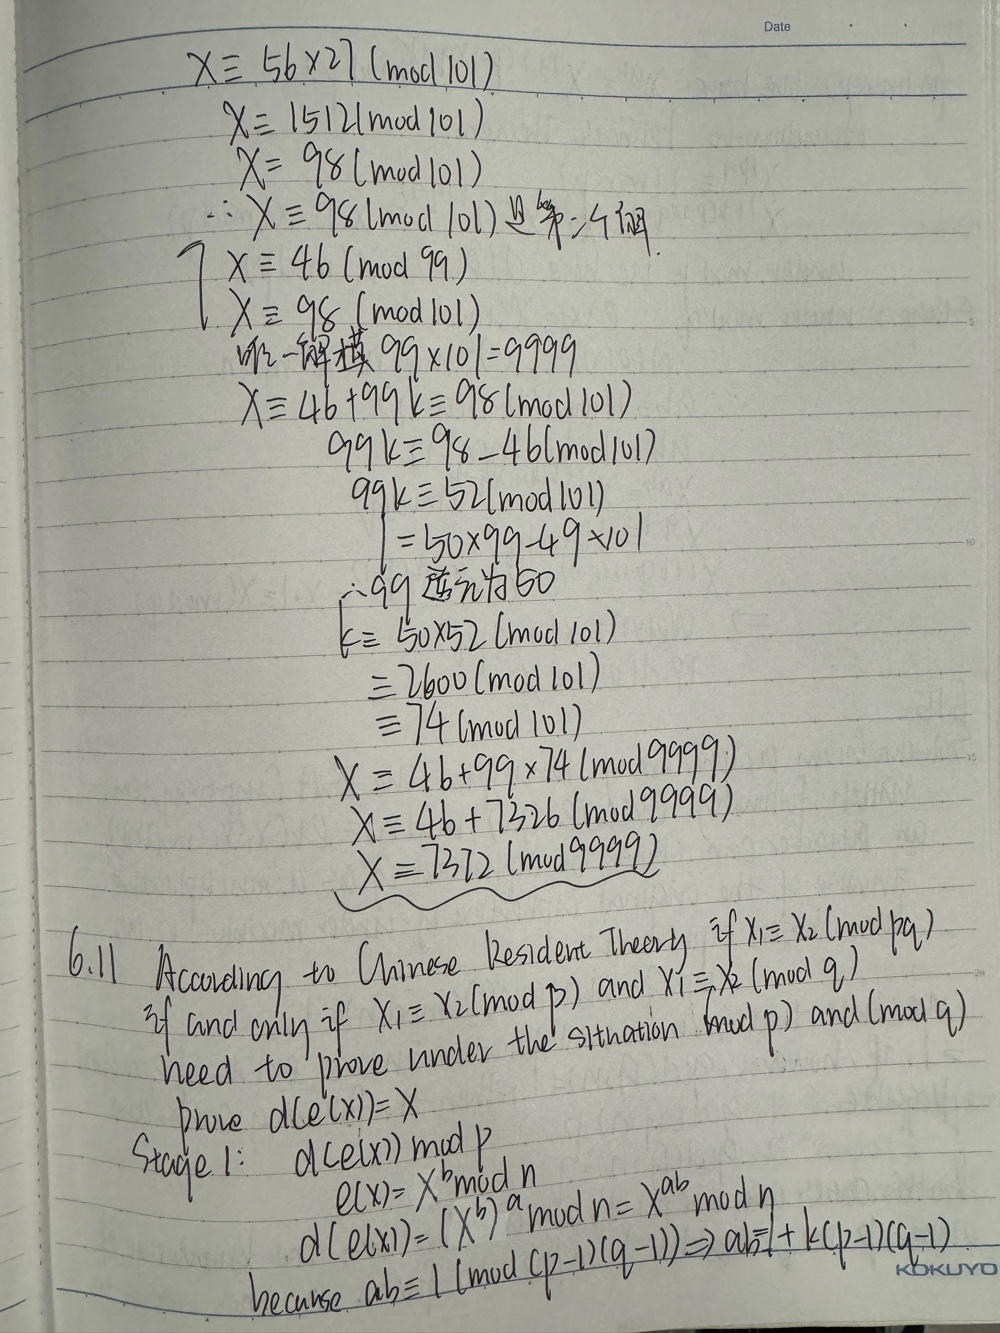 Date
X ≡ 56×27 (mod 101)
X ≡ 1512 (mod 101)
X = 98 (mod 101)
∴ X ≡ 98 (mod 101) 是第二个解.
X ≡ 46 (mod 99)
X ≡ 98 (mod 101)
唯一解模 99×101=9999
X ≡ 46+99k ≡ 98 (mod 101)
99k ≡ 98-46 (mod 101)
99k ≡ 52 (mod 101)
1 = 50×99-49×101
∴ 99 逆元为 50
k ≡ 50×52 (mod 101)
≡ 2600 (mod 101)
≡ 74 (mod 101)
X ≡ 46+99×74 (mod 9999)
X ≡ 46+7326 (mod 9999)
X ≡ 7372 (mod 9999)
6.11 According to Chinese Resident Theory if X1 ≡ X2 (mod pq)
if and only if X1 ≡ X2 (mod p) and X1 ≡ X2 (mod q)
need to prove under the situation (mod p) and (mod q)
prove d(e(x)) = X
Stage 1: d(e(x)) mod p
e(x) = X^b mod n
d(e(x)) = (X^b)^a mod n = X^ab mod n
because ab ≡ 1 (mod (p-1)(q-1)) ⇒ ab=1+k(p-1)(q-1)
KOKUYO